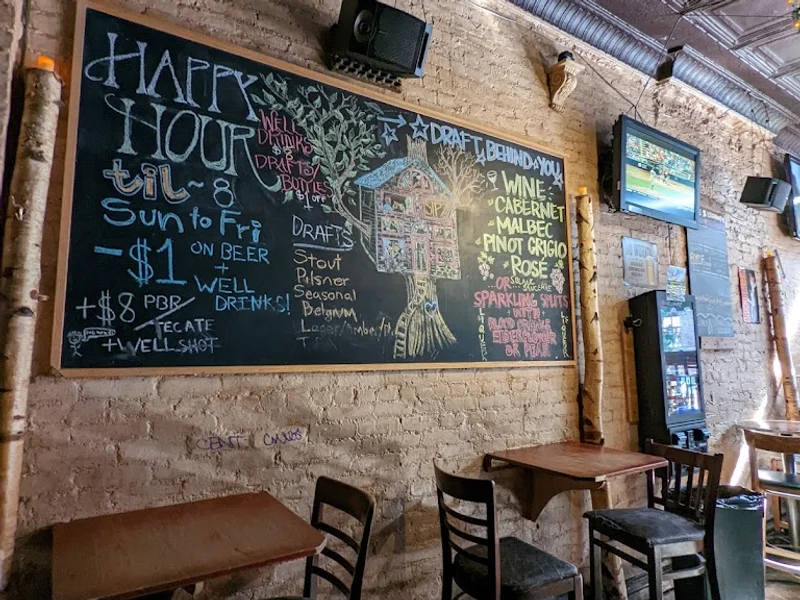 HAPPY
HOUR
til ~ 8
Sun to Fri
-$1 ON BEER
+
WELL
DRINKS!
+$8 PBR/
TECATE
+ WELL SHOT
WELL
DRINKS
$
DRAFTS/
BOTTLES
$1 OFF
DRAFTS
Stout
Pilsner
Seasonal
Belgium
Lager/Amber/
DRAFT BEHIND YOU
WINE:
CABERNET
MALBEC
PINOT GRIGIO
ROSÉ
OR
SPARKLING SPLITS
WITH
BLOOD ORANGE
ELDERFLOWER
OR PEAR
LIQUER
LIQUER